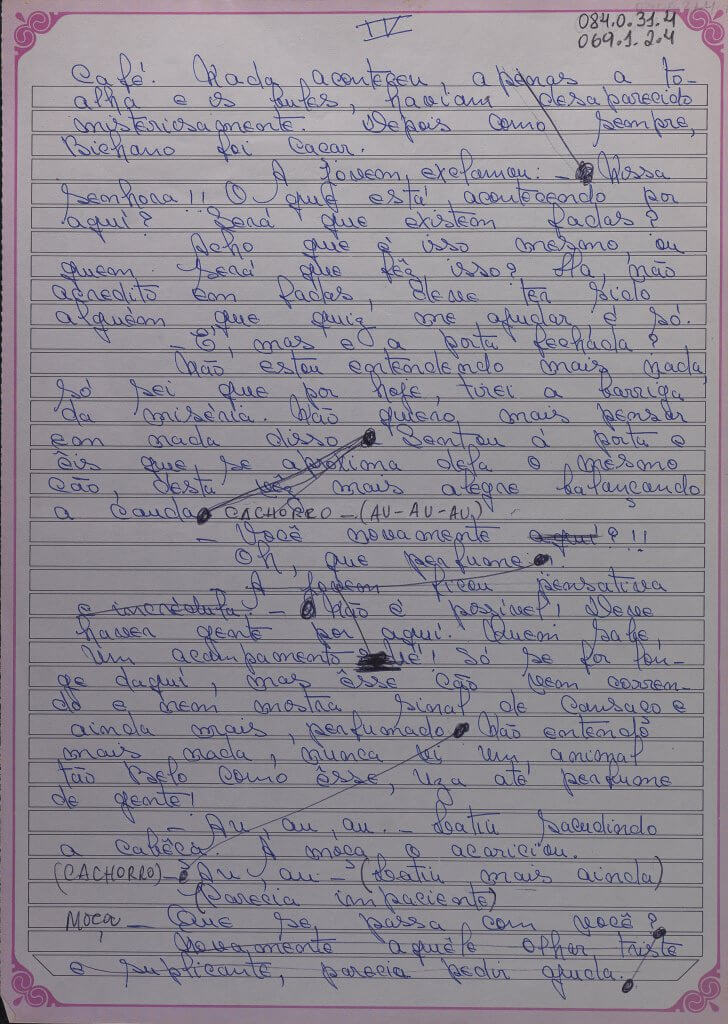 084.0.31.4
069.1.2.4
IV
Café. Nada aconteceu, apenas a to-
alha e os bules, haviam desaparecido
misteriosamente. Depois como sempre,
Bichano foi caçar.
A jovem, exclamou: - Nossa
Senhora!! O que está acontecendo por
aqui? Será que existem fadas?
Acho que é isso mesmo, ou
quem será que fêz isso? Ha, não
acredito em fadas, deve ter sido
alguém que quiz me ajudar é só.
- É, mas e a porta fechada?
Não estou entendendo mais nada,
só sei que por hoje, tirei a barriga
da miséria. Não quero mais pensar
em nada disso. Sentou á porta e
êis que se aproxima dela o mesmo
cão, desta vêz mais alegre balançando
a cauda CACHORRO - (AU-AU-AU)
- Você novamente aqui?!!
Oh, que perfume!
A jovem ficou pensativa
e incrédula. - Não é posivel! Deve
haver gente por aqui. Quem sabe,
um acampamento é! Só se for lon-
ge daqui, mas êsse cão vem corren-
do e nem mostra sinal de cansaço e
ainda mais, perfumado. Não entendo
mais nada, nunca vi um, animal
tão Belo como êsse, uza até perfume
de gente!
- Au, au, au. - latiu sacudindo
a cabêça. A môça o acariciou.
(CACHORRO) - Au, au - (latiu mais ainda)
(Parecia impaciente)
MOÇA - Que se, passa com você?
Novamente aquêle olhar triste
e suplicante, parecia pedir ajuda.